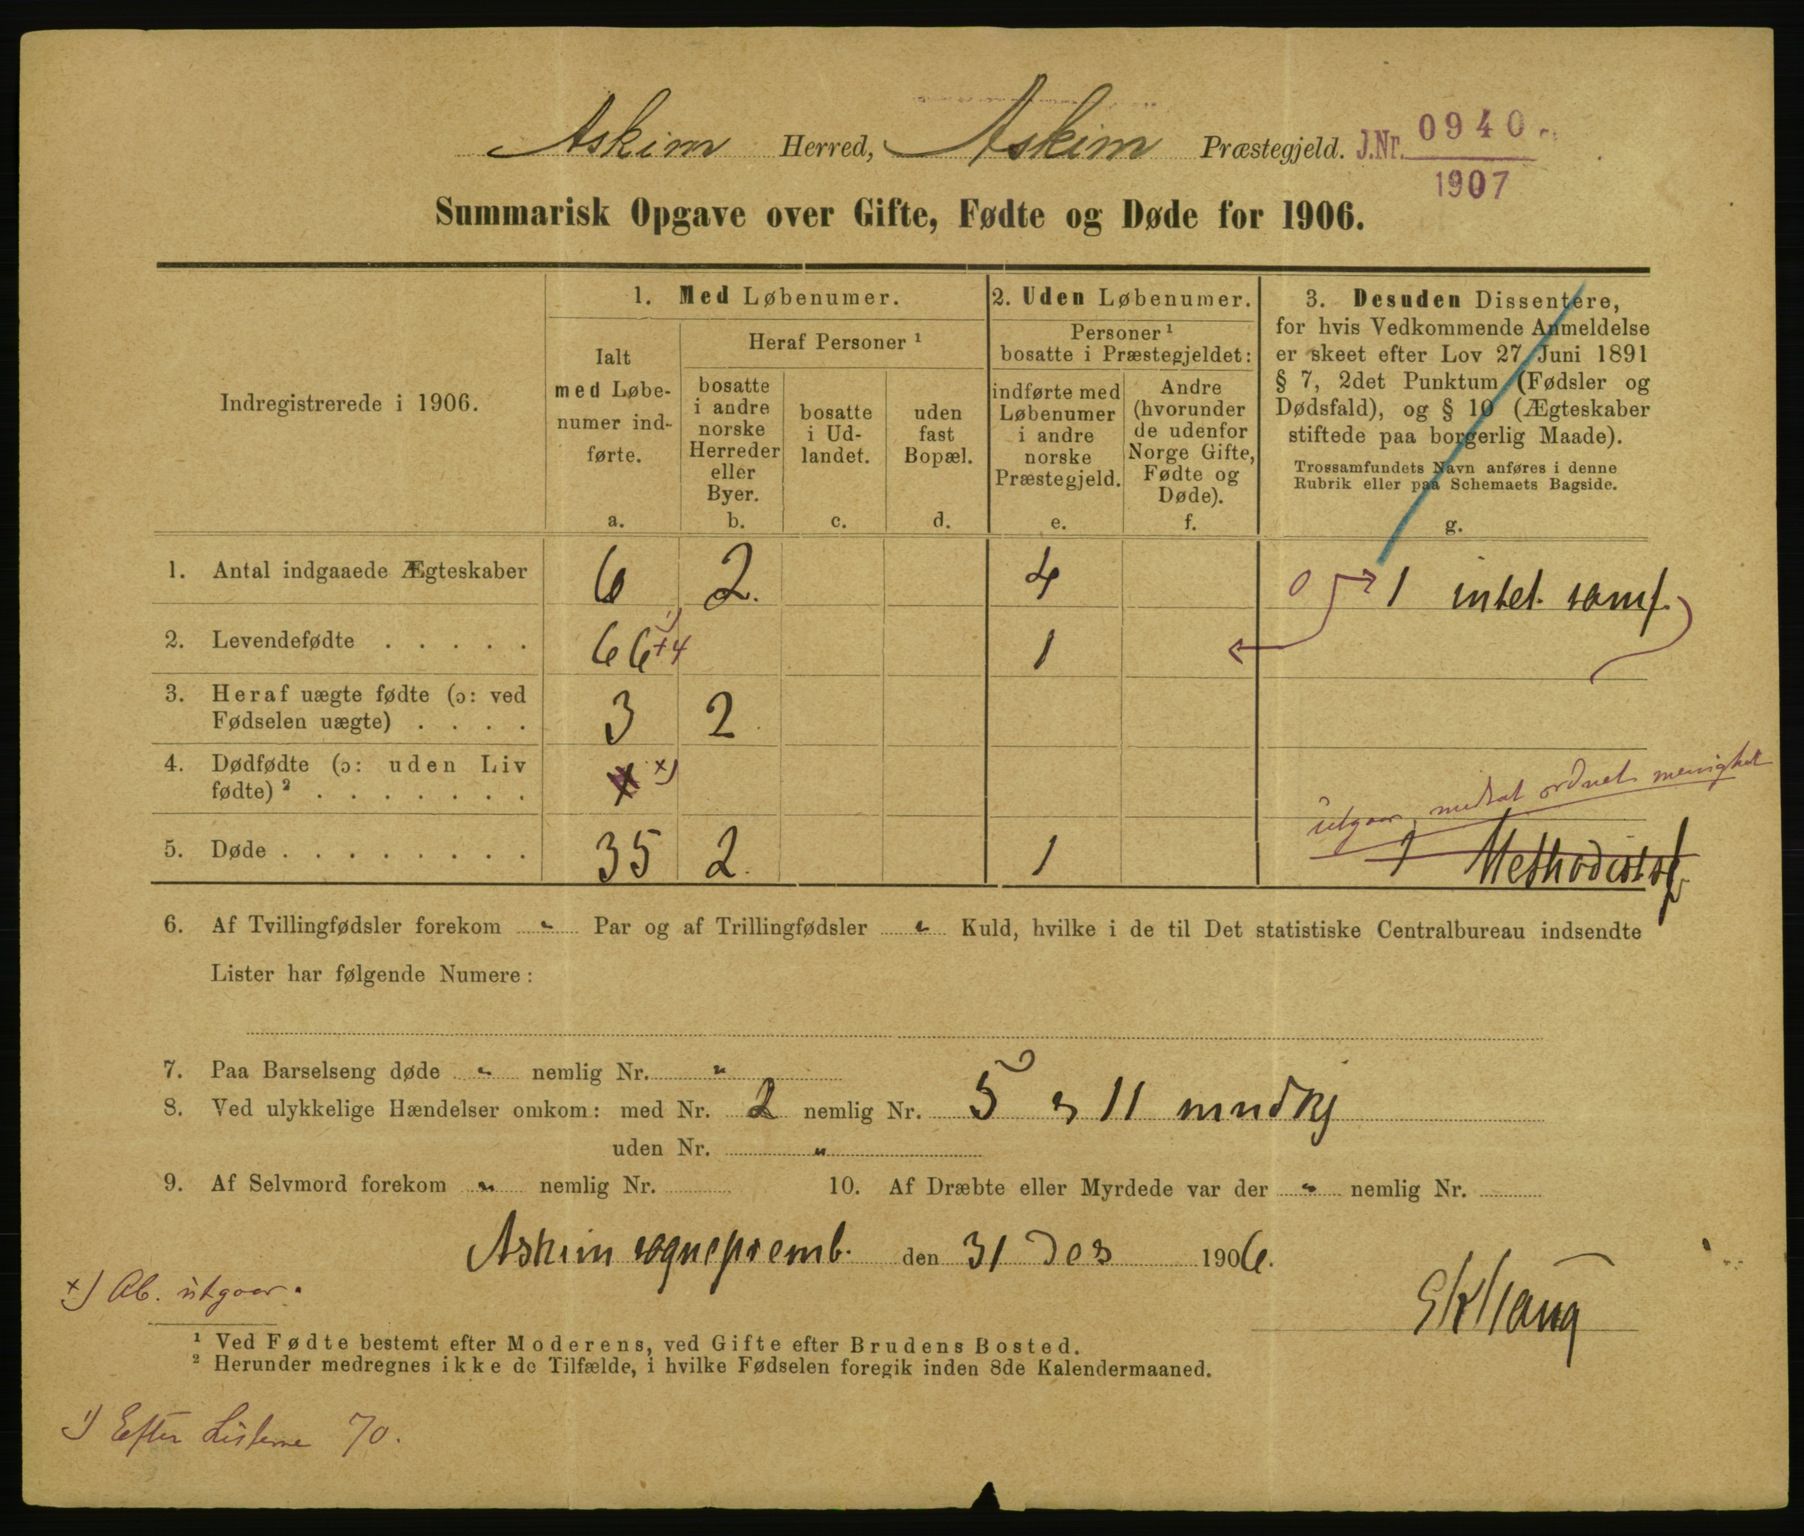 Askim Herred, Askim Præstegjeld. J.Nr. 0940
1907
Summarisk Opgave over Gifte, Fødte og Døde for 1906.
Indregistrerede i 1906.
1. Med Løbenumer.
Ialt
med Løbe-
numer ind-
førte.
a.
Heraf Personer ¹
bosatte
i andre
norske
Herreder
eller
Byer.
b.
bosatte
i Ud-
landet.
c.
uden
fast
Bopæl.
d.
2. Uden Løbenumer.
Personer ¹
bosatte i Præstegjeldet:
indførte med
Løbenumer
i andre
norske
Præstegjeld.
e.
Andre
(hvorunder
de udenfor
Norge Gifte,
Fødte og
Døde).
f.
3. Desuden Dissentere,
for hvis Vedkommende Anmeldelse
er skeet efter Lov 27 Juni 1891
§ 7, 2det Punktum (Fødsler og
Dødsfald), og § 10 (Ægteskaber
stiftede paa borgerlig Maade).
Trossamfundets Navn anføres i denne
Rubrik eller paa Schemaets Bagside.
g.
1. Antal indgaaede Ægteskaber 6 2. 4 0 1 intet samf.
2. Levendefødte . . . . . 66 +4 ¹) 1
3. Heraf uægte fødte (ɔ: ved
Fødselen uægte) . . . . 3 2
4. Dødfødte (ɔ: uden Liv
fødte) ² . . . . . . . x)
utgaar, medtat ordnet menighet
5. Døde . . . . . . . . 35 2. 1 1 Methodistsf
6. Af Tvillingfødsler forekom " Par og af Trillingfødsler " Kuld, hvilke i de til Det statistiske Centralbureau indsendte
Lister har følgende Numere:
7. Paa Barselseng døde " nemlig Nr. "
8. Ved ulykkelige Hændelser omkom: med Nr. 2 nemlig Nr. 5 og 11 mndkj
uden Nr. "
9. Af Selvmord forekom " nemlig Nr. 10. Af Dræbte eller Myrdede var der " nemlig Nr.
Askim sognepremb. den 31 Des 1906.
x) Ab. utgaar.
¹ Ved Fødte bestemt efter Moderens, ved Gifte efter Brudens Bosted.
² Herunder medregnes ikke de Tilfælde, i hvilke Fødselen foregik inden 8de Kalendermaaned.
¹) Efter Listerne 70.